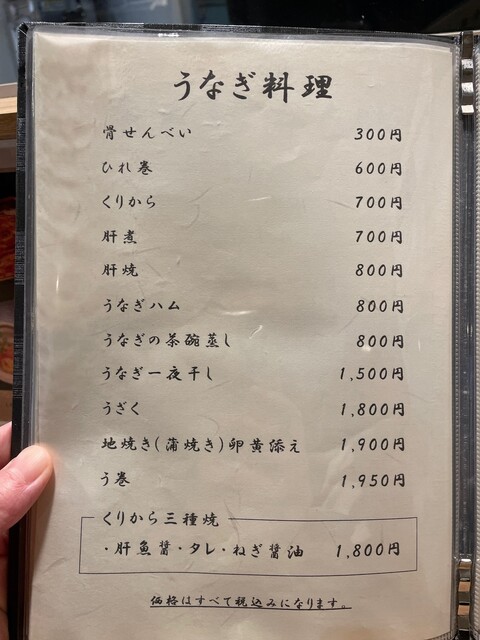 うなぎ料理
骨せんべい 300円
ひれ巻 600円
くりから 700円
肝煮 700円
肝焼 800円
うなぎハム 800円
うなぎの茶碗蒸し 800円
うなぎ一夜干し 1,500円
うざく 1,800円
地焼き(蒲焼き)卵黄添え 1,900円
う巻 1,950円
くりから三種焼
・肝魚醤・タレ・ねぎ醤油 1,800円
価格はすべて税込みになります。